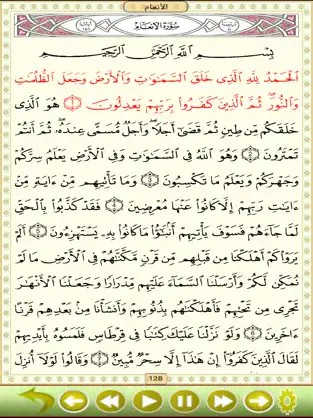 الأنعام
سُورَةُ الأَنْعَامِ
بِسْمِ اللَّهِ الرَّحْمَٰنِ الرَّحِيمِ
الْحَمْدُ لِلَّهِ الَّذِي خَلَقَ السَّمَاوَاتِ وَالْأَرْضَ وَجَعَلَ الظُّلُمَاتِ
وَالنُّورَ ثُمَّ الَّذِينَ كَفَرُوا بِرَبِّهِمْ يَعْدِلُونَ ۝ هُوَ الَّذِي
خَلَقَكُم مِّن طِينٍ ثُمَّ قَضَىٰ أَجَلًا وَأَجَلٌ مُّسَمًّى عِندَهُ ثُمَّ أَنتُمْ
تَمْتَرُونَ ۝ وَهُوَ اللَّهُ فِي السَّمَاوَاتِ وَفِي الْأَرْضِ يَعْلَمُ سِرَّكُمْ
وَجَهْرَكُمْ وَيَعْلَمُ مَا تَكْسِبُونَ ۝ وَمَا تَأْتِيهِم مِّنْ ءَايَةٍ مِّنْ
ءَايَاتِ رَبِّهِمْ إِلَّا كَانُوا عَنْهَا مُعْرِضِينَ ۝ فَقَدْ كَذَّبُوا بِالْحَقِّ
لَمَّا جَاءَهُمْ فَسَوْفَ يَأْتِيهِمْ أَنبَاءُ مَا كَانُوا بِهِ يَسْتَهْزِءُونَ ۝ أَلَمْ
يَرَوْا كَمْ أَهْلَكْنَا مِن قَبْلِهِم مِّن قَرْنٍ مَّكَّنَّاهُمْ فِي الْأَرْضِ مَا لَمْ
نُمَكِّن لَّكُمْ وَأَرْسَلْنَا السَّمَاءَ عَلَيْهِم مِّدْرَارًا وَجَعَلْنَا الْأَنْهَارَ
تَجْرِي مِن تَحْتِهِمْ فَأَهْلَكْنَاهُم بِذُنُوبِهِمْ وَأَنشَأْنَا مِن بَعْدِهِمْ قَرْنًا
ءَاخَرِينَ ۝ وَلَوْ نَزَّلْنَا عَلَيْكَ كِتَابًا فِي قِرْطَاسٍ فَلَمَسُوهُ بِأَيْدِيهِمْ
لَقَالَ الَّذِينَ كَفَرُوا إِنْ هَٰذَا إِلَّا سِحْرٌ مُّبِينٌ ۝ وَقَالُوا لَوْلَا أُنزِلَ
128